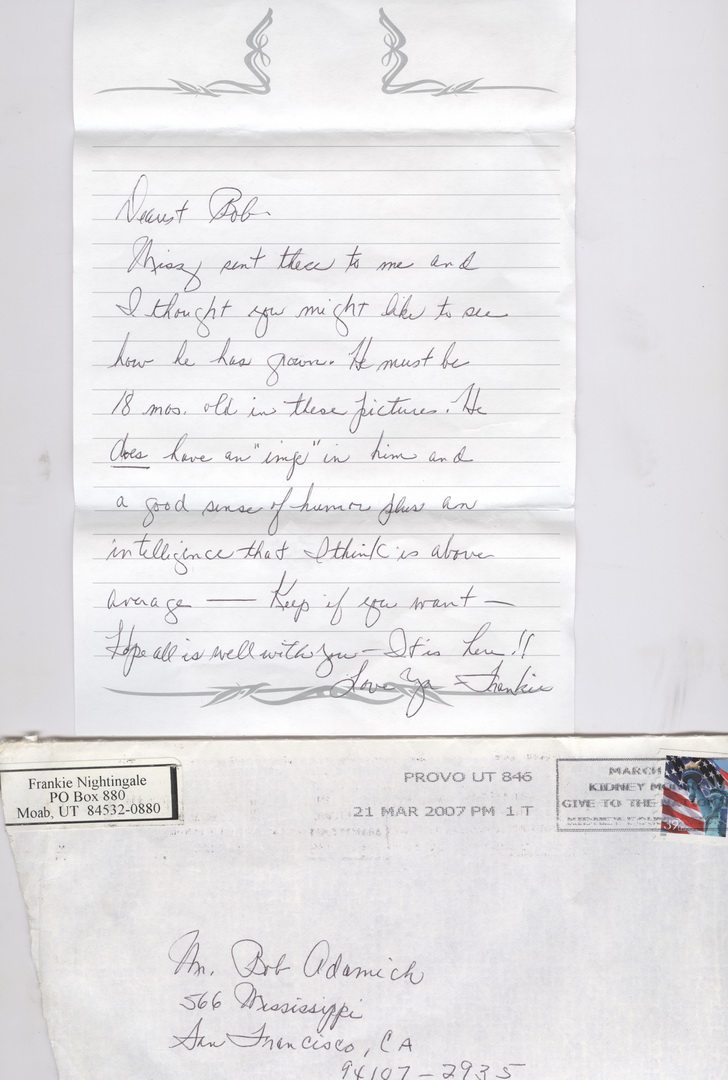 Dearest Bob.
Missy sent these to me and
I thought you might like to see
how he has grown. He must be
18 mos. old in these pictures. He
does have an "imp" in him and
a good sense of humor plus an
intelligence that I think is above
average — Keep if you want —
Hope all is well with you — It is here!!
Love Ya Frankie
Frankie Nightingale
PO Box 880
Moab, UT 84532-0880
PROVO UT 846
21 MAR 2007 PM 1 T
MARCH
KIDNEY
GIVE TO THE
39
Mr. Bob Adamich
566 Mississippi
San Francisco, CA
94107-2935